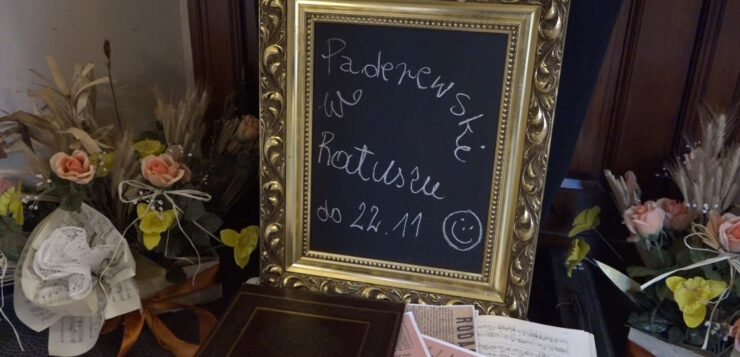 Paderewski
w
Ratuszu
do 22.11
ROD